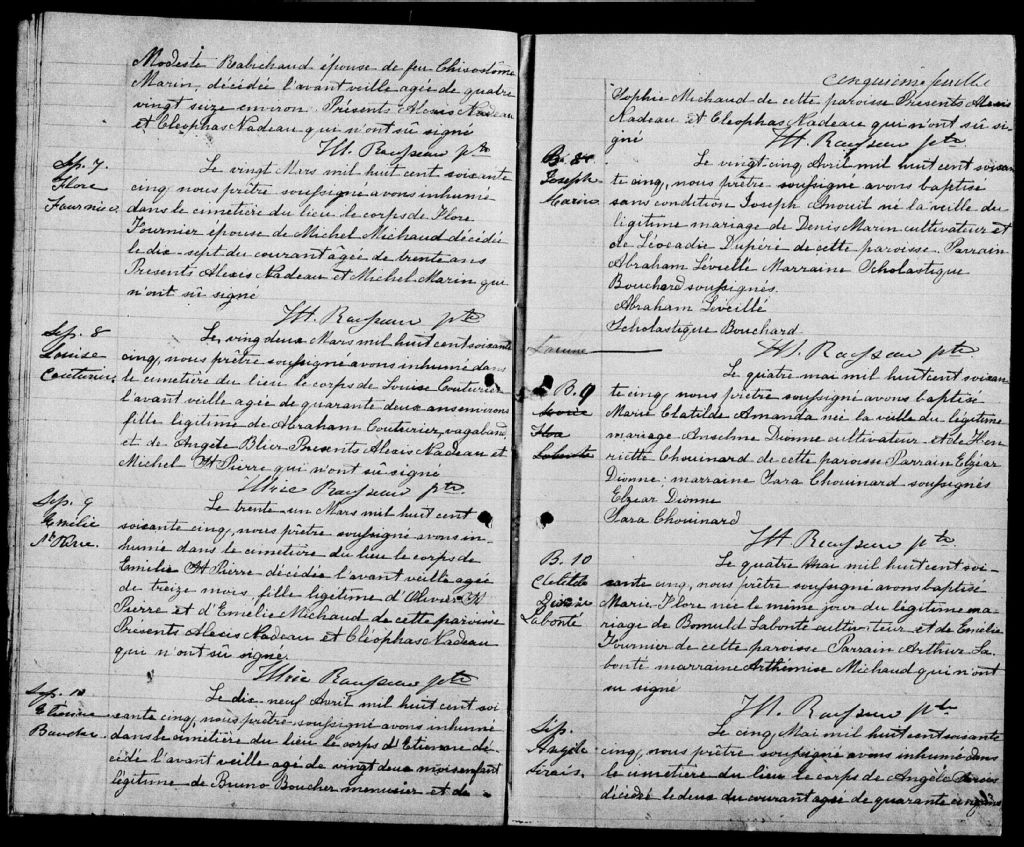 Modeste Rabichaud épouse de feu Chisostôme
Marin, décédée l'avant veille agée de quatre
vingt seize environ Présents Alexis Nadeau
et Cléophas Nadeau qui n'ont sû signé
Ptre
Sep. 7
Flore
Fournier
Le vingt Mars mil huit cent soixante
cinq nous prêtre soussigné avons inhumé
dans le cimetière du lieu le corps de Flore
Fournier épouse de Michel Michaud décédée
le dix-sept du courant âgée de trente ans
Présents Alexis Nadeau et Michel Marin qui
n'ont sû signé
ptre
Sep. 8
Louise
Couturier
Le vingt deux Mars mil huit cent soixante
cinq, nous prêtre soussigné avons inhumé dans
le cimetière du lieu le corps de Louise Couturier
l'avant veille agée de quarante deux ans environs
fille légitime de Abraham Couturier, vagabond,
et de Angèle Blier Présents Alexis Nadeau et
Michel St Pierre qui n'ont sû signé
Ulric ptre
Sep. 9
Emélie
St Pierre
Le trente-un Mars mil huit cent
soixante cinq, nous prêtre soussigné avons in-
humé dans le cimetière du lieu le corps de
Emélie St Pierre décédée l'avant veille agée
de treize mois, fille légitime d'Olivier St
Pierre et d'Emélie Michaud de cette paroisse
Présents Alexis Nadeau et Cléophas Nadeau
qui n'ont sû signé.
Ulric ptre
Sep. 10
Etienne
Boucher
Le dix neuf Avril mil huit cent soi
xante cinq, nous prêtre soussigné avons inhumé
dans le cimetière du lieu le corps d'Etienne dé-
cédé l'avant veille agée de vingt deux mois enfant
légitime de Bruno Boucher menusier et de
cinquieme feuille
Sophie Michaud de cette paroisse Présents Alexis
Nadeau et Cleophas Nadeau qui n'ont sû si-
gné
ptre
B. 8
Joseph
Marin
Le vingt cinq Avril mil huit cent soixan
te cinq, nous prêtre soussigné avons baptisé
sans condition Joseph né la veille du
légitime mariage de Denis Marin cultivateur et
de Léocadie Dupéré de cette paroisse Parrain
Abraham Léveillé Marraine Scholastique
Bouchard soussignés.
Abraham Léveillé
Scholastique Bouchard
ptre
B. 9
Le quatre mai mil huit cent soixan
te cinq, nous prêtre soussigné avons baptisé
Marie Clatilde Amanda née la veille du légitime
mariage Anselme Dionne cultivateur et de Hen-
riette Chouinard de cette paroisse Parrain Elzéar
Dionne marraine Sara Chouinard soussignés
Elzéar Dionne
Sara Chouinard
ptre
B. 10
Clotilde
Labonté
Le quatre Mai mil huit cent soi-
xante cinq, nous prêtre soussigné avons baptisé
Marie-Flore née le même jour du légitime ma-
riage de Romuld Labonté cultivateur et de Emélie
Fournier de cette paroisse Parrain Arthur La-
bonté marraine Arthémise Michaud qui n'ont
su signé
ptre
Sép.
Angèle
Sirois.
Le cinq Mai mil huit cent soixante
cinq, nous prêtre soussigné avons inhumé dans
le cimetière du lieu le corps de Angèle Sirois
décédée le deux du courant agée de quarante cinq ans